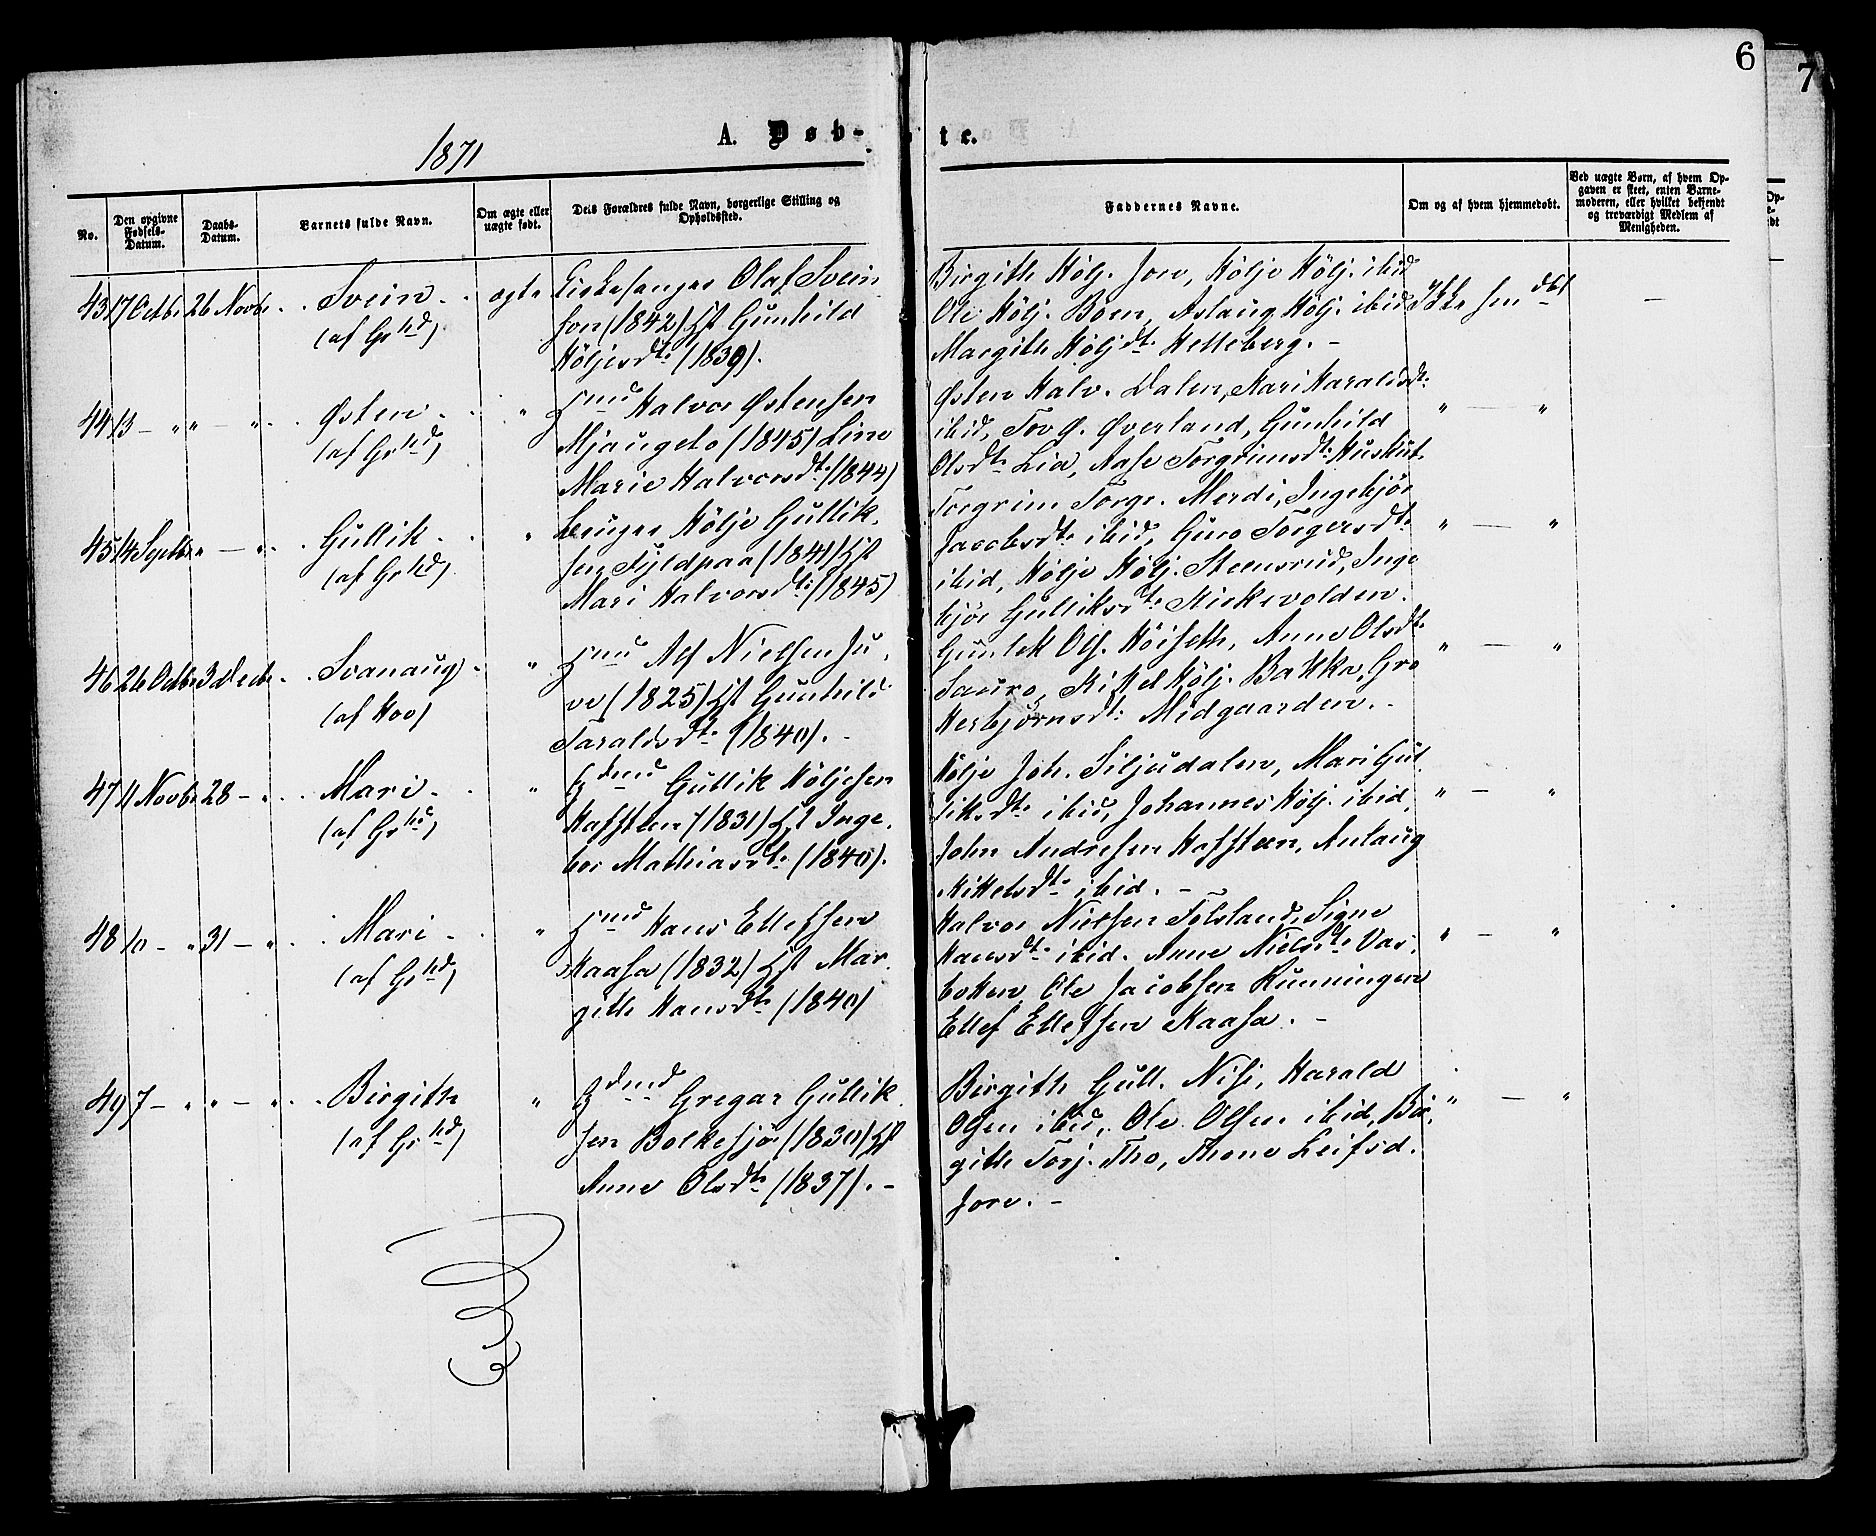 6
7
1871
A. Døb-
te.
No.
Den opgivne Fødsels-Datum.
Daabs-Datum.
Barnets fulde Navn.
Om ægte eller uægte født.
Dets Forældres fulde Navn, borgerlige Stilling og Opholdssted.
Faddernes Navne.
Om og af hvem hjemmedøbt.
Ved uægte Børn, af hvem Opgaven er skeet, enten Barnemoderen, eller hvilket bekjendt og troværdigt Medlem af Menigheden.
43 17 Octbr 26 Novbr
Svein
(af Grhd)
ægte
Kirkesanger Olaf Svein
sen (1842) Hst Gunhild
Höljesdtr (1839).
Birgith Hölj. Jore, Hölje Hölj. ibid
Ole Hölj. Boen, Aslaug Hölj. ibid
Margith Höljdtr Helleberg. -
Ikke hmdbt
44 13 - " " - "
Østen
(af Grhd)
"
Hmd Halvor Østensen
Mjaugeto (1845) Line
Marie Halvorsdtr (1844)
Østen Halv. Dalen, Mari Haraldsdtr
ibid, Tov Ø. Øverland, Gunhild
Olsdtr Lia, Aase Torgrimsdtr
" — "
45 14 Septbr " - "
Gullik
(af Grhd)
"
Bruger Hölje Gullik
sen Fyldpaa (1841) Hst
Mari Halvorsdtr (1845)
Torgrim Torgr. Merdi, Ingebjör
Jacobsdtr ibid, Guro Torgersdtr
ibid, Hölje Hölj. Steensrud, Inge
björ Gulliksdtr Kirkevolden.
" — "
46 26 Octbr 3 Decbr
Svanaug
(af Hov)
"
Hmd Alf Nielsen Ju
ve (1825) Hst Gunhild
Taraldsdtr (1840). -
Gunlek Ols. Höiseth, Anne Olsdtr
Sauro, Kittel Hölj. Bakka, Gro
Herbjörnsdtr Midgaarden. -
" — "
47 11 Novbr 28 - "
Mari
(af Grhd)
"
Gdmd Gullik Höljesen
Haffsteen (1831) Hst Inge
bor Mathiasdtr (1840).
Hölje Joh. Siljudalen, Mari Gul
liksdtr ibid, Johannes Hölj. ibid,
John Andresen Haffsteen, Anlaug
Kittelsdtr ibid. -
" — "
48 10 - " 31 - "
Mari
(af Grhd)
"
Hmd Hans Ellefsen
Kaasa (1832) Hst Mar
gith Hansdtr (1840)
Halvor Nielsen Folsland, Signe
Hansdtr ibid. Anne Nielsdtr Vas
boken, Ole Jacobsen Runningen
Ellef Ellefsen Kaasa. -
" — "
49 7 - " " - "
Birgith
(af Grhd)
"
Gdmd Gregar Gullik
sen Bolkesjø (1830) Hst
Anne Olsdtr (1837). -
Birgith Gull. Nisi, Harald
Olsen ibid, Ole Olsen ibid, Bir
gith Torj. Tho, Thone Leifsd.
Jore. -
" — "